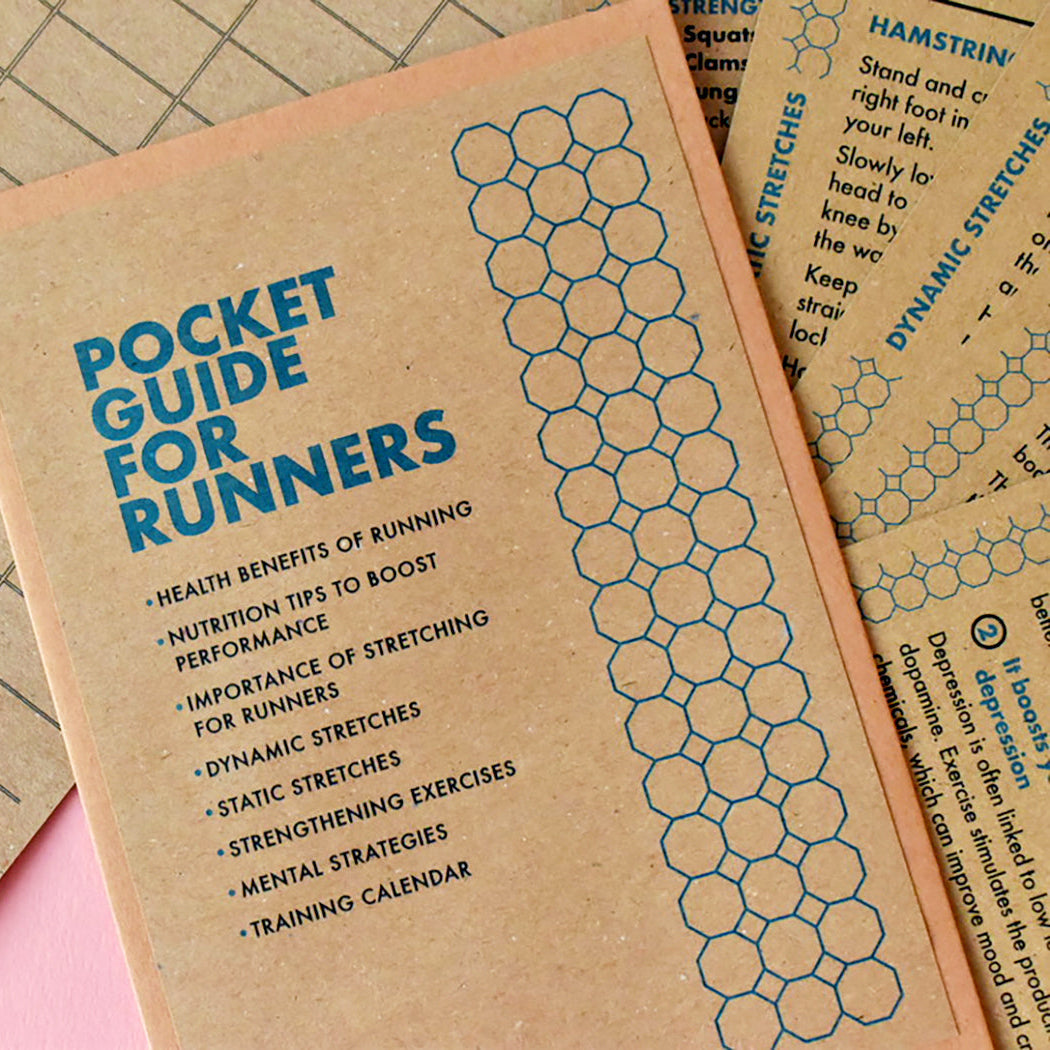 POCKET
GUIDE
FOR
RUNNERS
•HEALTH BENEFITS OF RUNNING
•NUTRITION TIPS TO BOOST
PERFORMANCE
•IMPORTANCE OF STRETCHING
FOR RUNNERS
•DYNAMIC STRETCHES
•STATIC STRETCHES
•STRENGTHENING EXERCISES
•MENTAL STRATEGIES
•TRAINING CALENDAR
Squats
Clams
STRETCHES
HAMSTRING
Stand and
right foot in
your left.
Slowly
head to
knee by
the
Keep
DYNAMIC STRETCHES
2 It boosts
depression
Depression is often linked to low
dopamine. Exercise stimulates the
chemicals, which can improve mood and